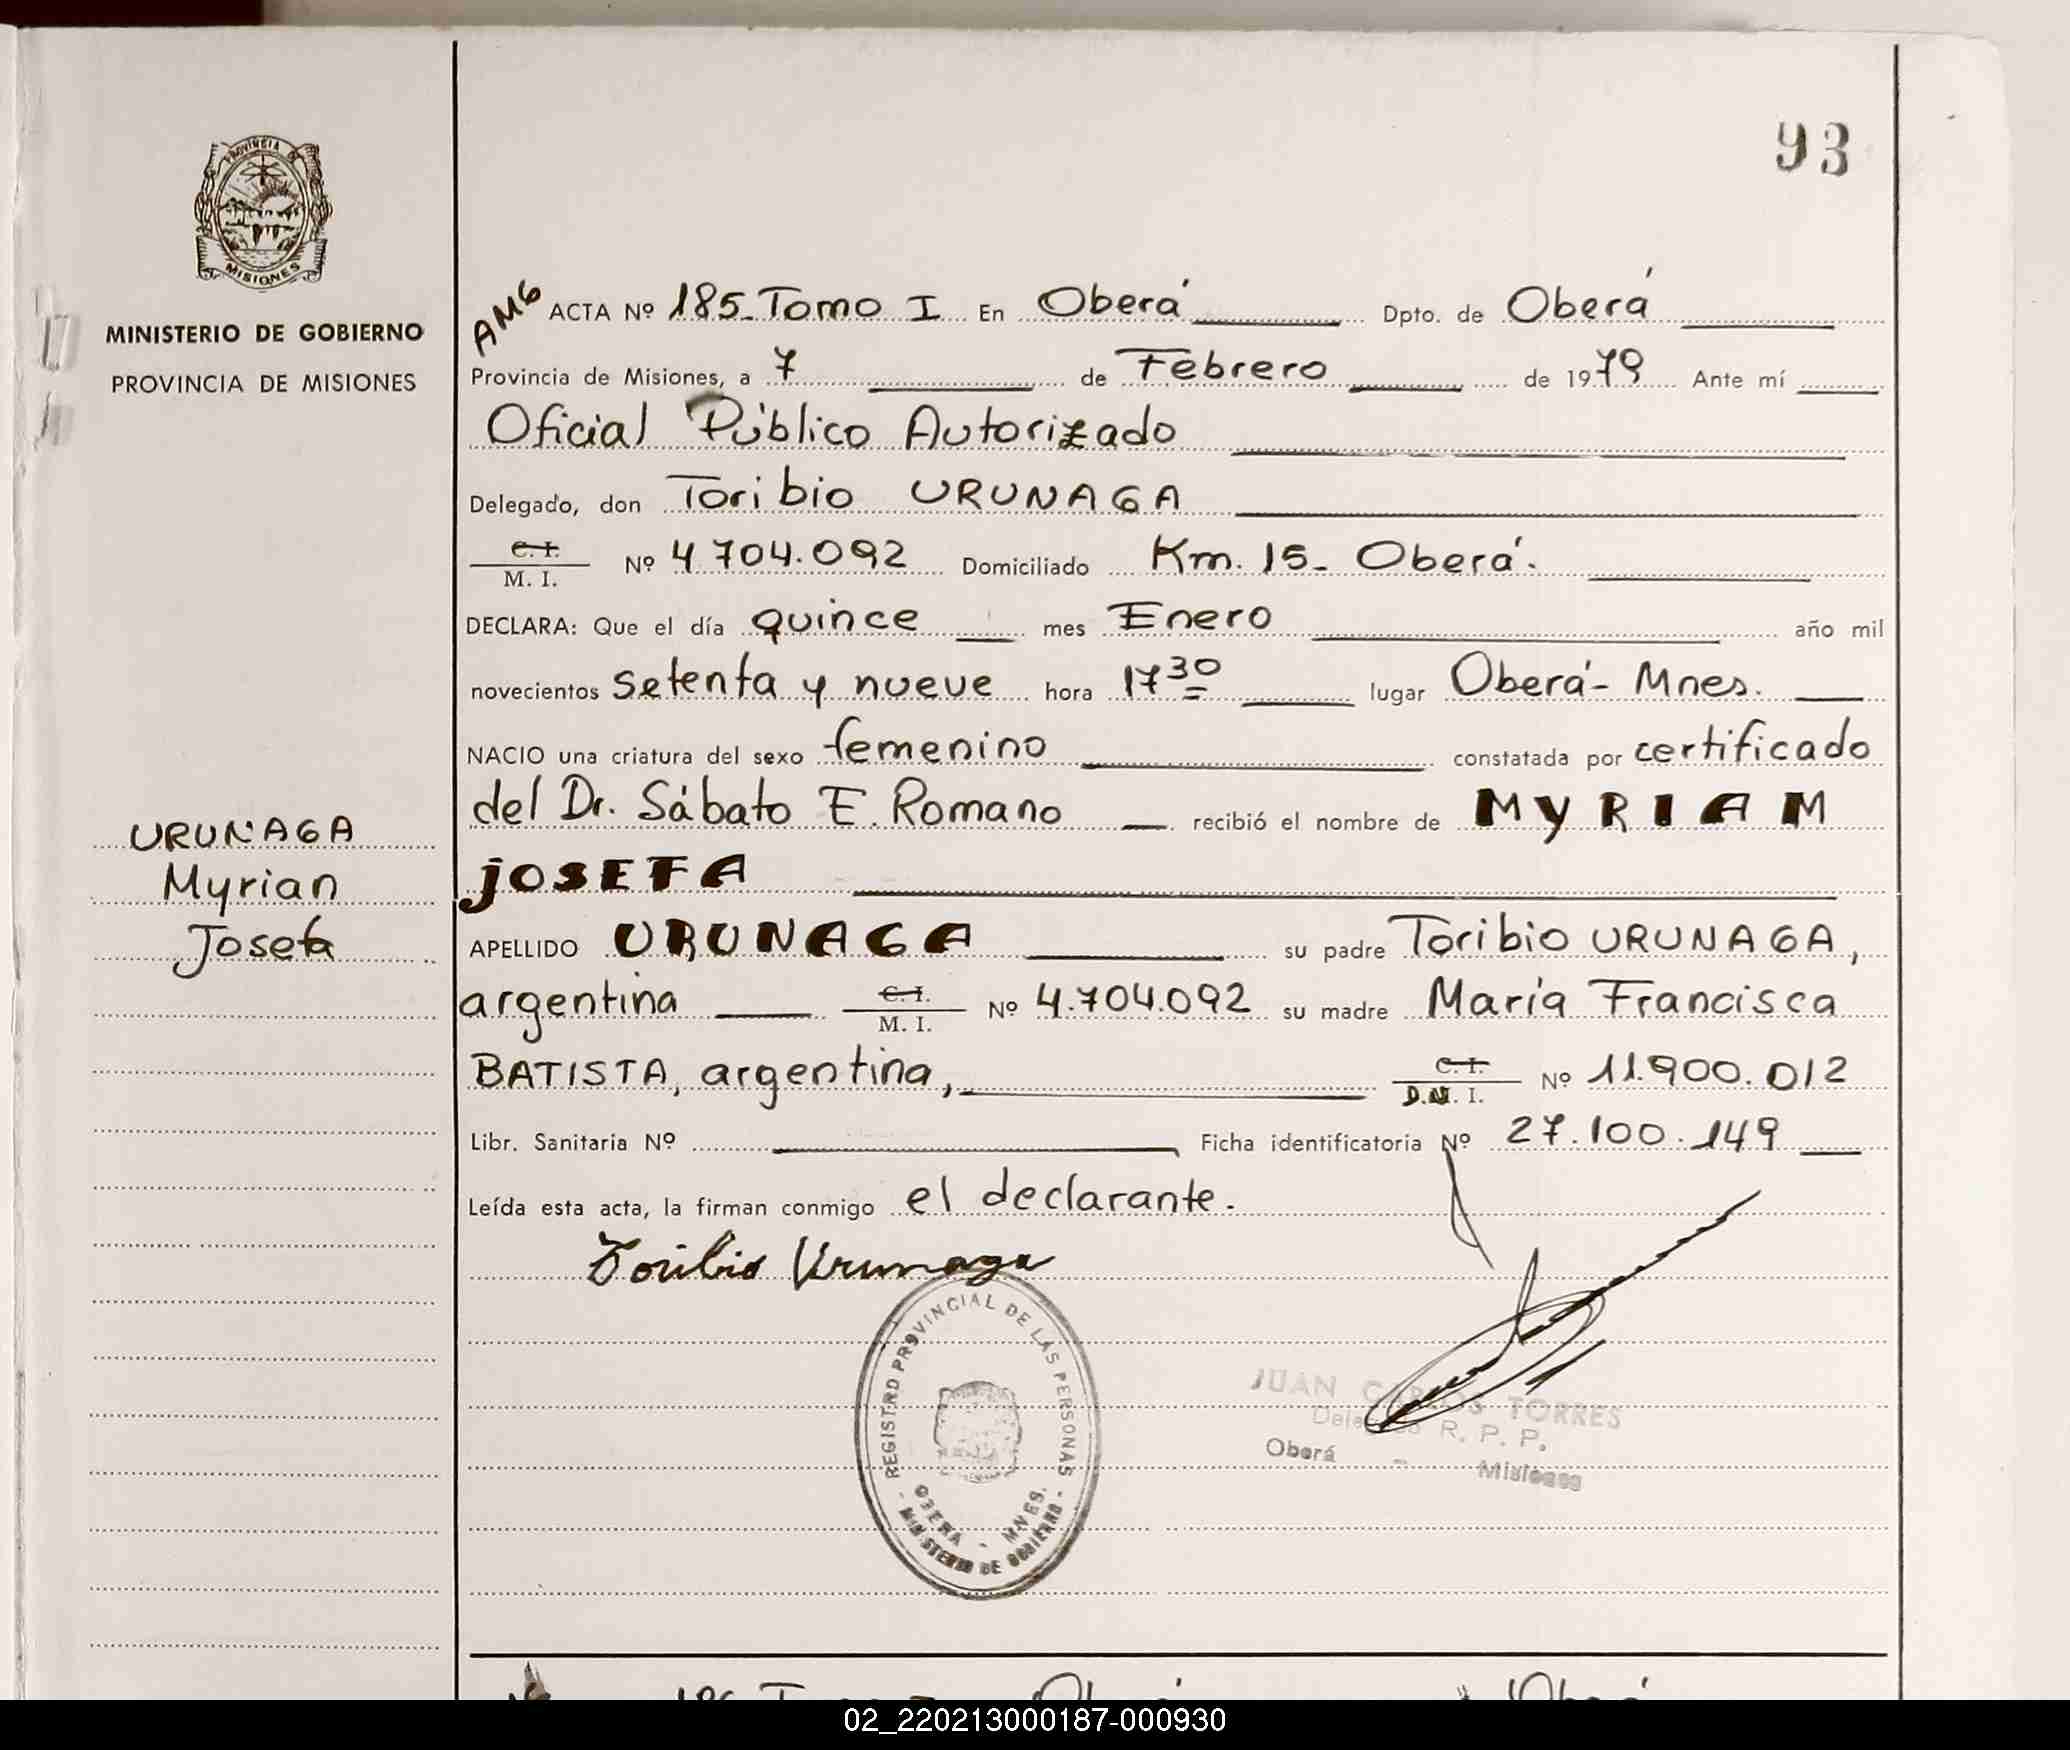 93
PROVINCIA DE
MISIONES
MINISTERIO DE GOBIERNO
PROVINCIA DE MISIONES
AMG
ACTA Nº 185_ Tomo I En Oberá Dpto. de Oberá
Provincia de Misiones, a 7 de Febrero de 1979 Ante mí
Oficial Público Autorizado
Delegado, don Toribio URUNAGA
C. I.
M. I. Nº 4.704.092 Domiciliado Km. 15_ Oberá.
DECLARA: Que el día quince mes Enero año mil
novecientos setenta y nueve hora 17 30 lugar Oberá- Mnes.
NACIO una criatura del sexo femenino constatada por certificado
del Dr. Sábato E. Romano recibió el nombre de MYRIAM
JOSEFA
APELLIDO URUNAGA su padre Toribio URUNAGA,
argentina C. I.
M. I. Nº 4.704.092 su madre María Francisca
BATISTA, argentina, C. I.
D.N. I. Nº 11.900.012
Libr. Sanitaria Nº Ficha identificatoria Nº 27.100.149
Leída esta acta, la firman conmigo el declarante.
Toribio Urunaga
URUNAGA
Myrian
Josefa
REGISTRO PROVINCIAL DE LAS PERSONAS
OBERA - MNES.
- MINISTERIO DE GOBIERNO -
JUAN CARLOS TORRES
Delegado R. P. P.
Oberá - Misiones
02_220213000187-000930